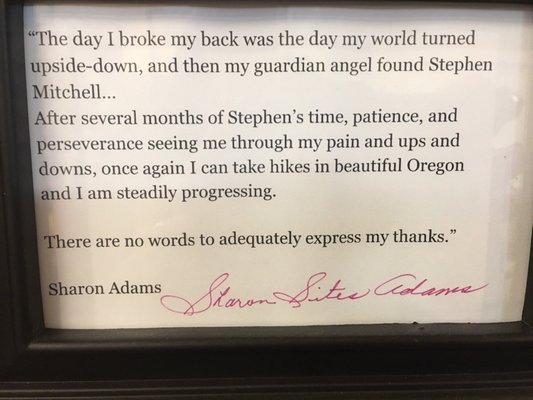 “The day I broke my back was the day my world turned
upside-down, and then my guardian angel found Stephen
Mitchell...
After several months of Stephen’s time, patience, and
perseverance seeing me through my pain and ups and
downs, once again I can take hikes in beautiful Oregon
and I am steadily progressing.
There are no words to adequately express my thanks.”
Sharon Adams Sharon Sites Adams